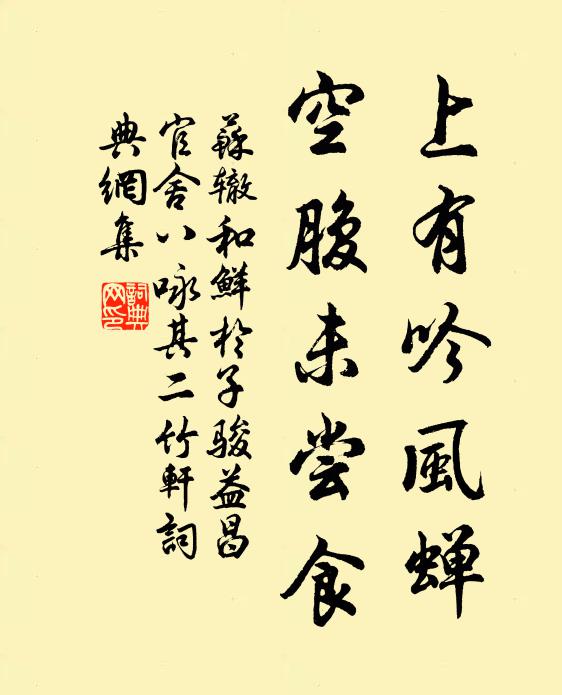 上有吟風蟬
空腹未尝食
蘇辙和鮮於子駿益昌
官舍八咏其二竹軒詞
典網集
詞典网印